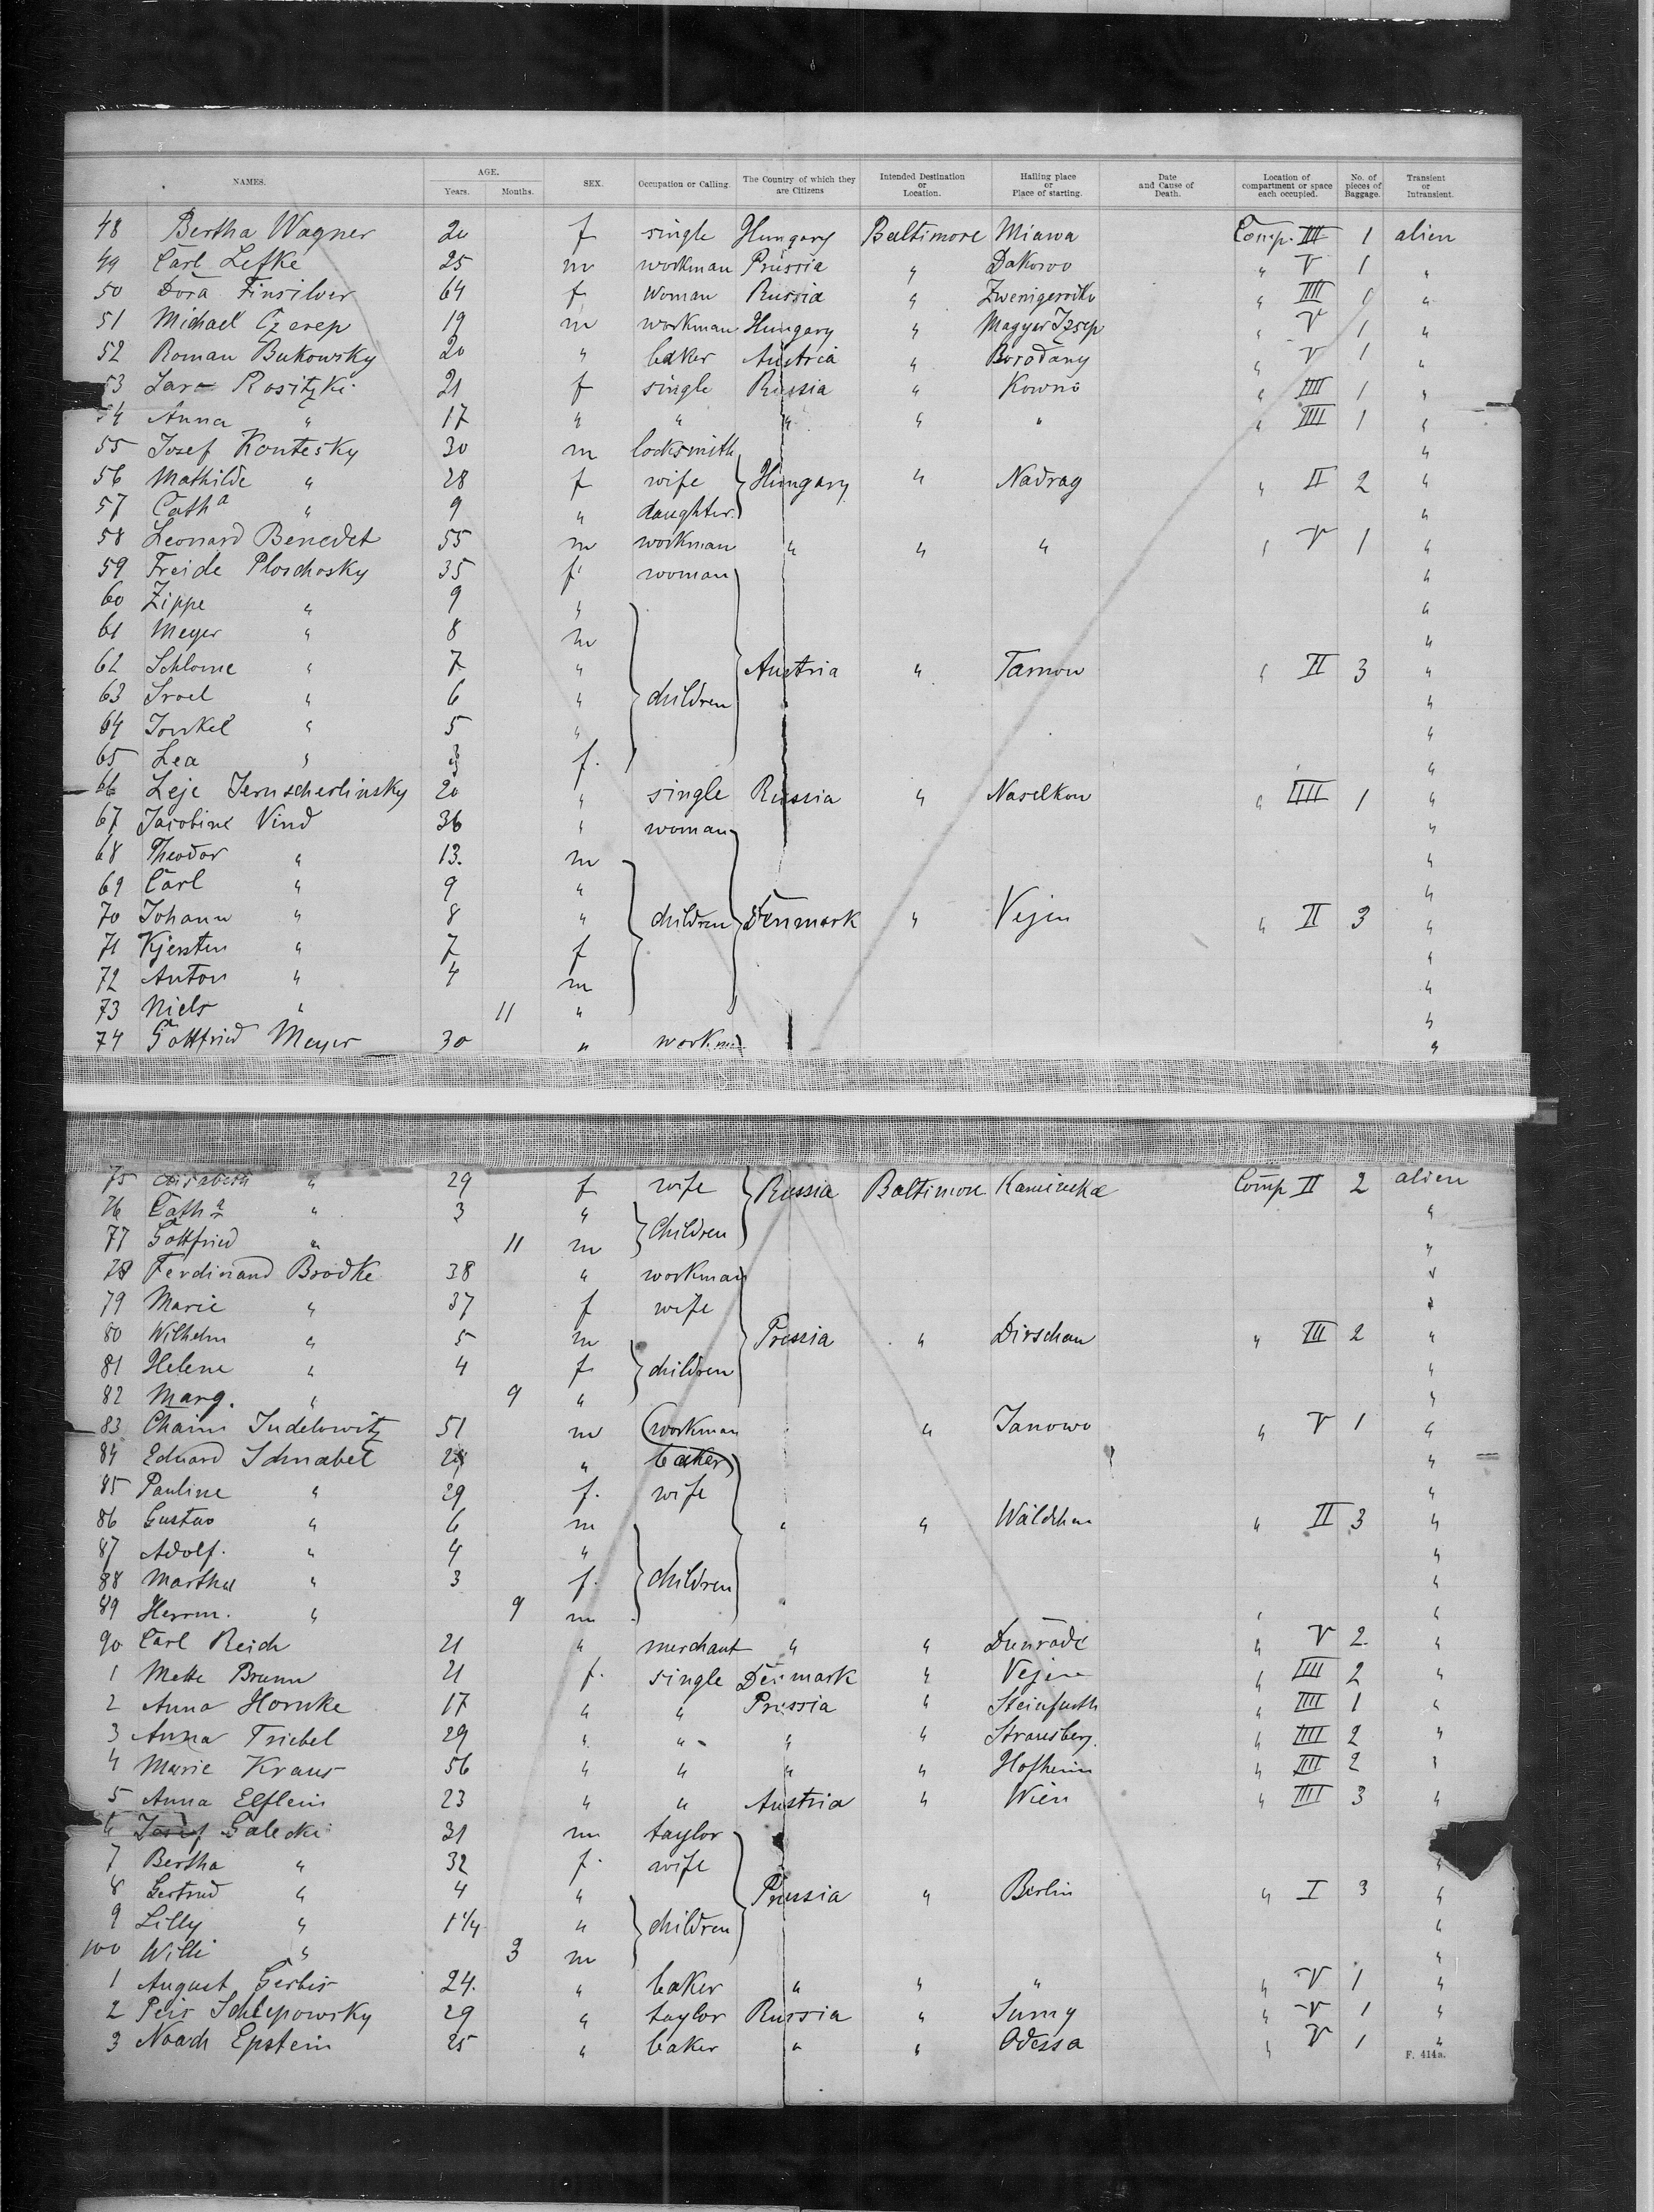 NAMES. AGE. Years. Months. SEX. Occupation or Calling. The Country of which they are Citizens Intended Destination or Location. Hailing place or Place of starting. Date and Cause of Death. Location of compartment or space each occupied. No. of pieces of Baggage. Transient or Intransient.
48 Bertha Wagner 20 f single Hungary Baltimore Miawa Comp. IIII 1 alien
49 Carl Lefke 25 m workman Prussia " Dakowo " V 1 "
50 Dora Finsilver 64 f Woman Russia " Zwenigerodka " IIII 1 "
51 Michael Czerep 19 m workman Hungary " Magyar Izsep " V 1 "
52 Roman Bukowsky 20 " baker Austria " Borodany " V 1 "
53 Sara Rositzki 21 f single Russia " Kowno " IIII 1 "
54 Anna " 17 " " " " " " IIII 1 "
55 Josef Kontesky 30 m locksmith "
56 Mathilde " 28 f wife Hungary " Nadrag " II 2 "
57 Catha " 9 " daughter "
58 Leonard Benedet 55 m workman " " " " V 1 "
59 Freide Ploschosky 35 f woman "
60 Zippe " 9 " "
61 Meyer " 8 m "
62 Schlome " 7 " Austria " Tarnow " II 3 "
63 Sroel " 6 " children "
64 Jankel " 5 " "
65 Lea " 3 f. "
66 Leje Jernscherlinsky 20 " single Russia " Naselkow " IIII 1 "
67 Jacobine Vind 36 " woman "
68 Theodor " 13. m "
69 Carl " 9 " "
70 Johann " 8 " children Denmark " Vejen " II 3 "
71 Kjersten " 7 f "
72 Anton " 4 m "
73 Niels " 11 " "
74 Gottfried Meyer 30 " workm "
75 Elisabeth " 29 f wife Russia Baltimore Kamincka Comp II 2 alien
76 Catha " 3 " Children "
77 Gottfried " 11 m "
78 Ferdinand Brodke 38 " workman "
79 Marie " 37 f wife "
80 Wilhelm " 5 m Prussia " Dirschau " III 2 "
81 Helene " 4 f children "
82 Marg. " 9 " "
83 Chaim Judelowitz 51 m workman " Janowo " V 1 "
84 Eduard Schnabel " baker "
85 Pauline " 29 f. wife "
86 Gustav " 6 m " " Wäldchen " II 3 "
87 Adolf. " 4 " "
88 Martha " 3 f. children "
89 Herrm. " 9 m "
90 Carl Reich 21 " merchant " " Dunrode " V 2. "
1 Mette Brunn 21 f. single Denmark " Vejen " IIII 2 "
2 Anna Hornke 17 " " Prussia " Steinfurth " IIII 1 "
3 Anna Triebel 29 " " " " Strausberg. " IIII 2 "
4 Marie Kraus 56 " " " " Hofheim " IIII 2 "
5 Anna Elflein 23 " " Austria " Wien " IIII 3 "
6 Josef Galecki 31 m taylor
7 Bertha " 32 f. wife "
8 Gertrud " 4 " Prussia " Berlin " I 3 "
9 Lilly " 1 1/4 " children "
100 Willi " 3 m "
1 August Gerbis 24. " baker " " " " V 1 "
2 Peis Schlepowsky 29 " taylor Russia " Sumy " V 1 "
3 Noach Epstein 25 " baker " " Odessa " V 1 "
F. 414a.